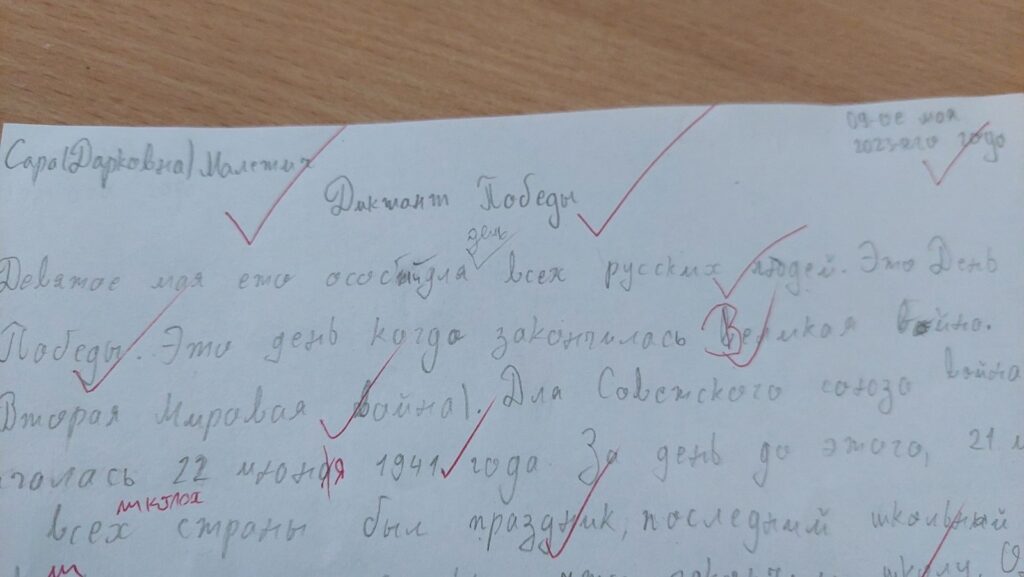 Сара (Дарковна) Малетих
09-ое мая
2023-его года
Диктант Победы
день
Девятое мая ето особый для всех русских людей. Это День
Победы. Это день когда закончилась Великая война.
Вторая Мировая война). Для Советского союза война
чалась 22 июня 1941 года. За день до этого, 21
школах
всех страны был праздник, последний школьный
школу.